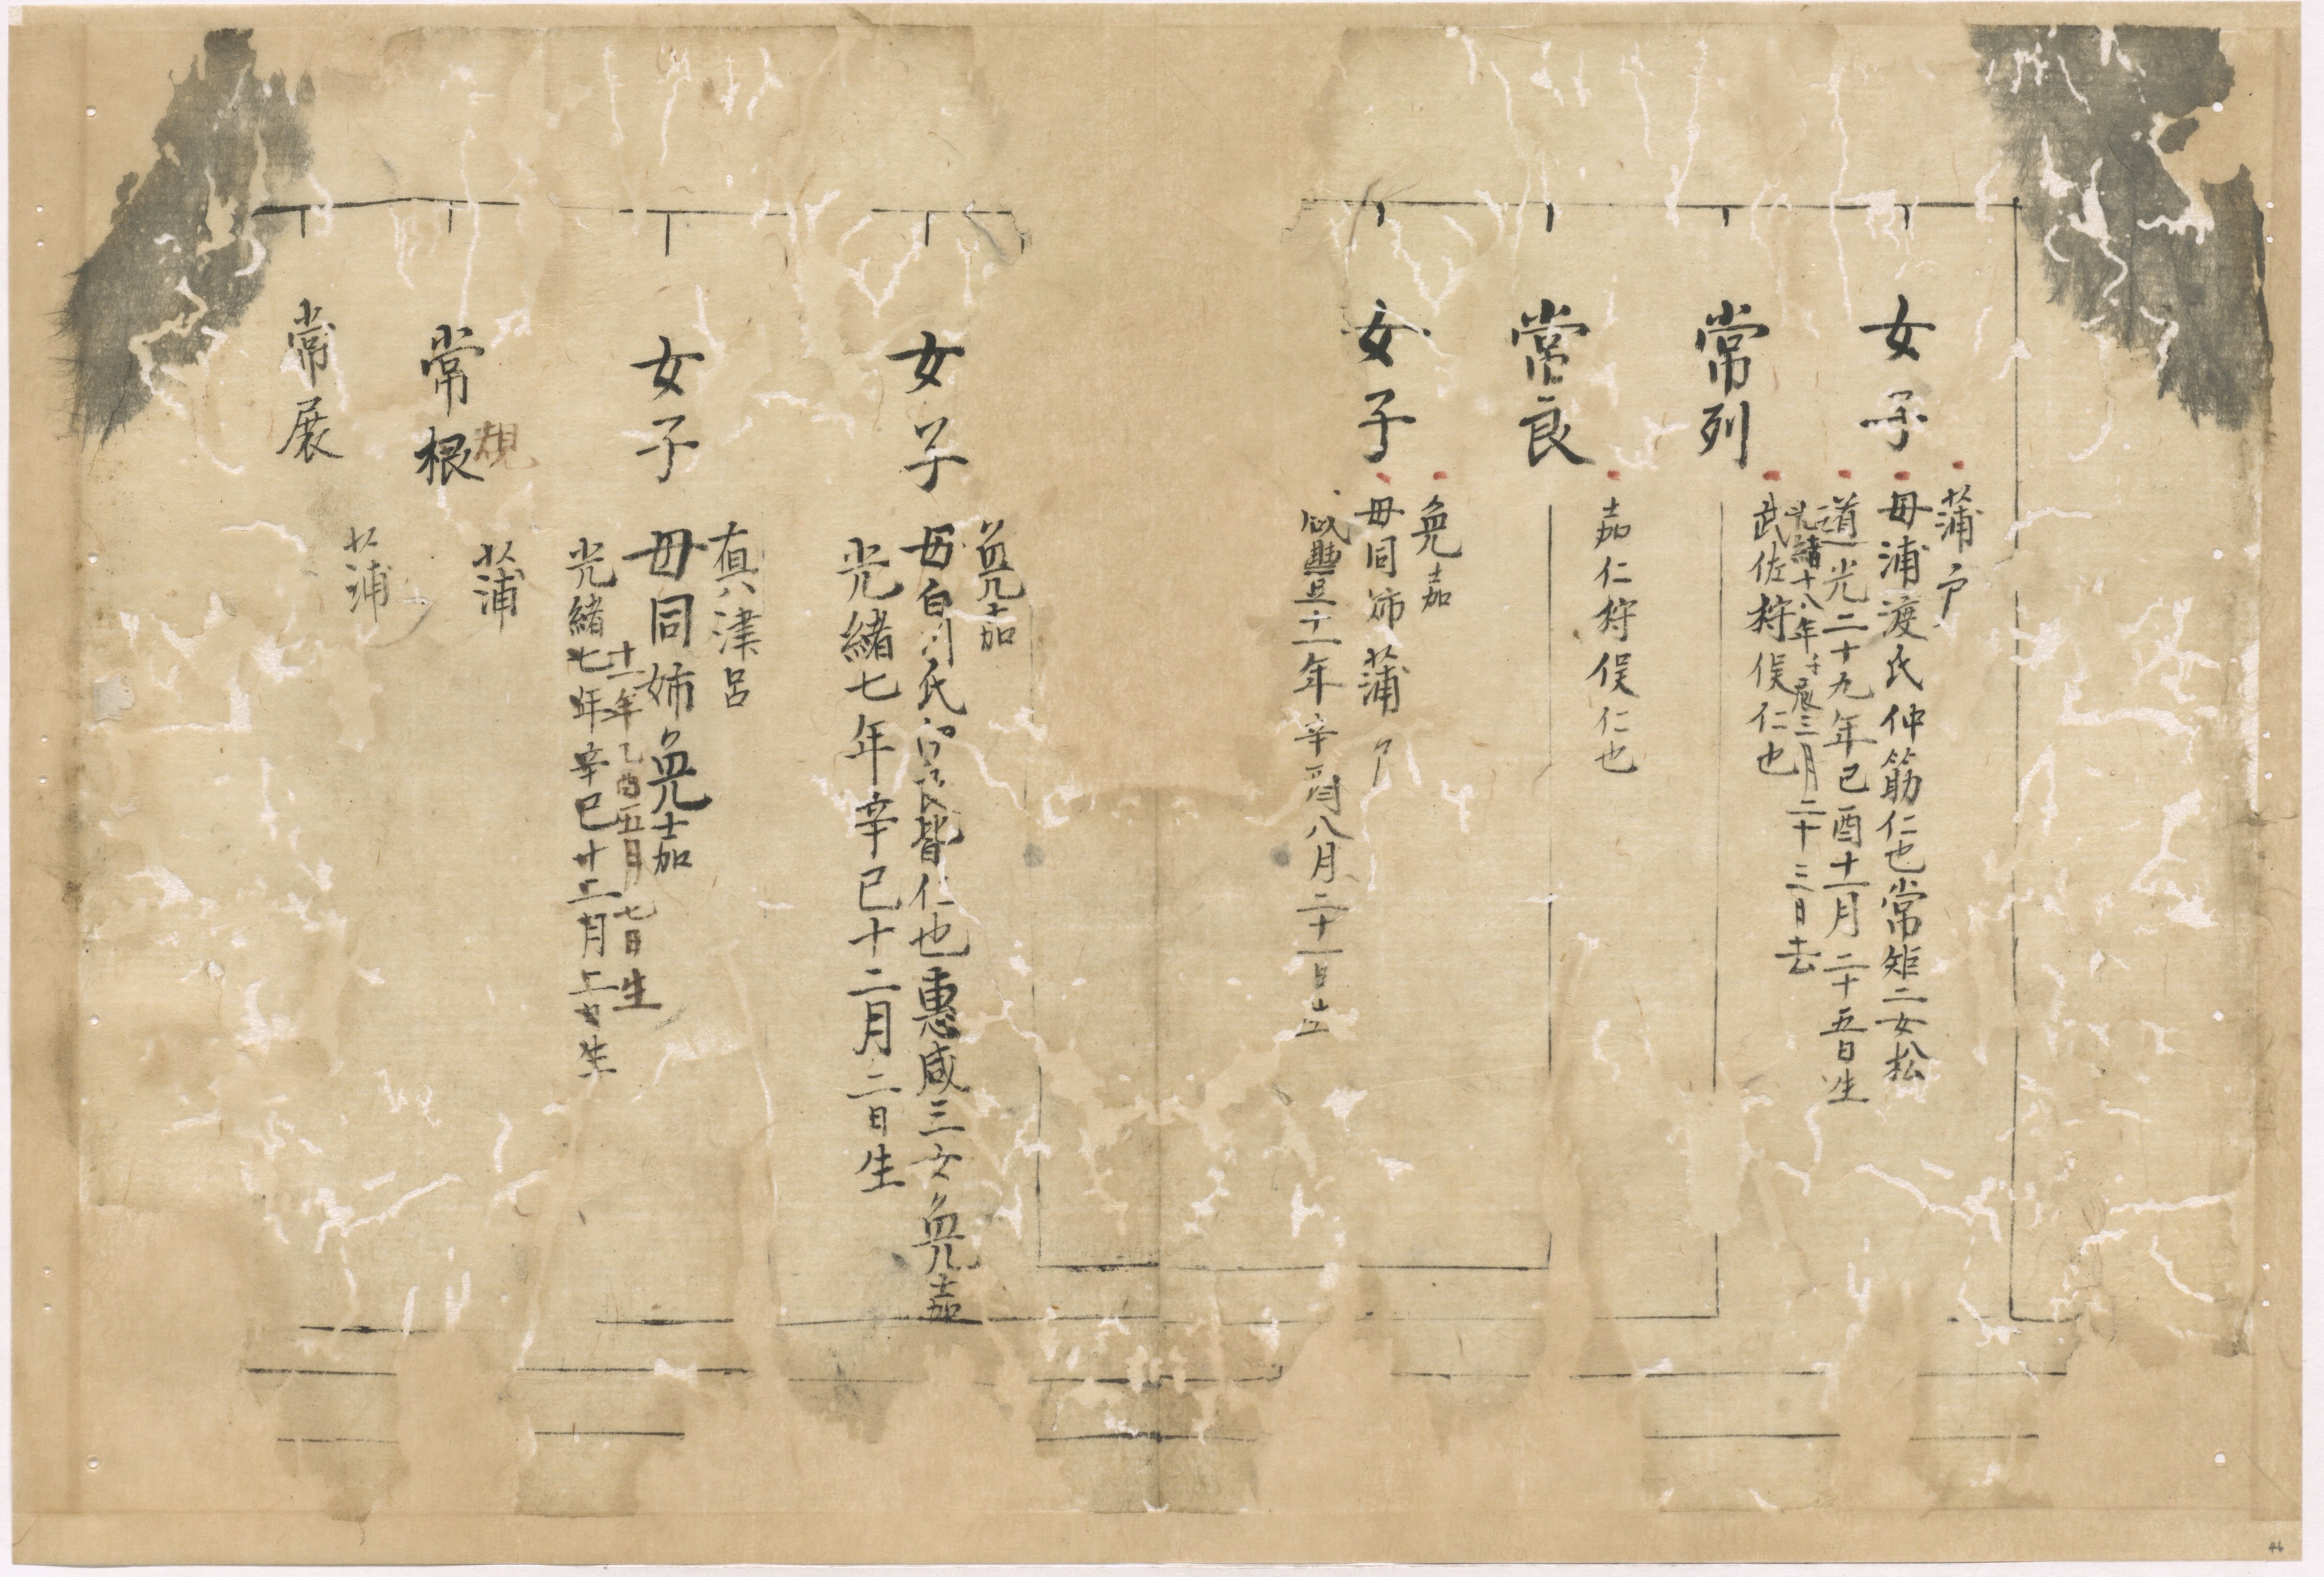 女子
蒲戸
母浦渡氏仲筋仁也常矩二女松
道光二十九年己酉十一月二十五日生
光緒十八年壬辰三月二十三日去
常列
武佐狩俣仁也
常良
嘉仁狩俣仁也
女子
免嘉
母同姉蒲戸
咸豊十一年辛酉八月二十一日生
女子
免嘉
母白川氏 皆仁也恵咸三女免嘉
光緒七年辛巳十二月二日生
女子
真津呂
母同姉免嘉
十一年乙酉五月七日生
光緒七年辛巳十二月二日生
常根
規
蒲
常展
蒲
46